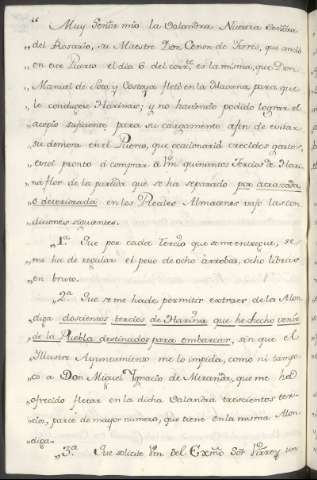 "Muy Señor mio la Balandra Nuestra Señora
„del Rosario, su Maestro Don Cenon de Torres, que ancló
„en ese Puerto el dia 6 del corr.te es la misma, que Don
„Manuel de Soto y Costaya fletó en la Havana para que
„le conduzca Harinas; y no haviendo podido lograr el
„acopio suficiente para su cargamento afin de evitar
„su demora en el Puerto, que ocasionaria crecidos gastos,
„estoi pronto á comprar á Vm quinientos Tercios de Hari
„na flor de la partida que se ha separado por atrasada
„ó deteriorada en los Reales Almacenes vajo las con
„diciones siguientes.
„1.a Que por cada Tercio que se me entregue, se
„me ha de regular el peso de ocho arrobas, ocho libras
„en bruto.
„2.a Que se me ha de permitir extraer de la Alon
„diga doscientos tercios de Harina que he hecho venir
„de la Puebla destinados para embarcar, sin que el
„Illustre Ayuntamiento me lo impida, como ni tampo
„co á Don Miguel Ygnacio de Miranda, que me há
„ofrecido fletar en la dicha Balandra trescientos ter
„cios, parte de mayor numero, que tiene en la misma Alon
„diga.
„3.a Que solicite Vm del Exmo Sor Virrey un